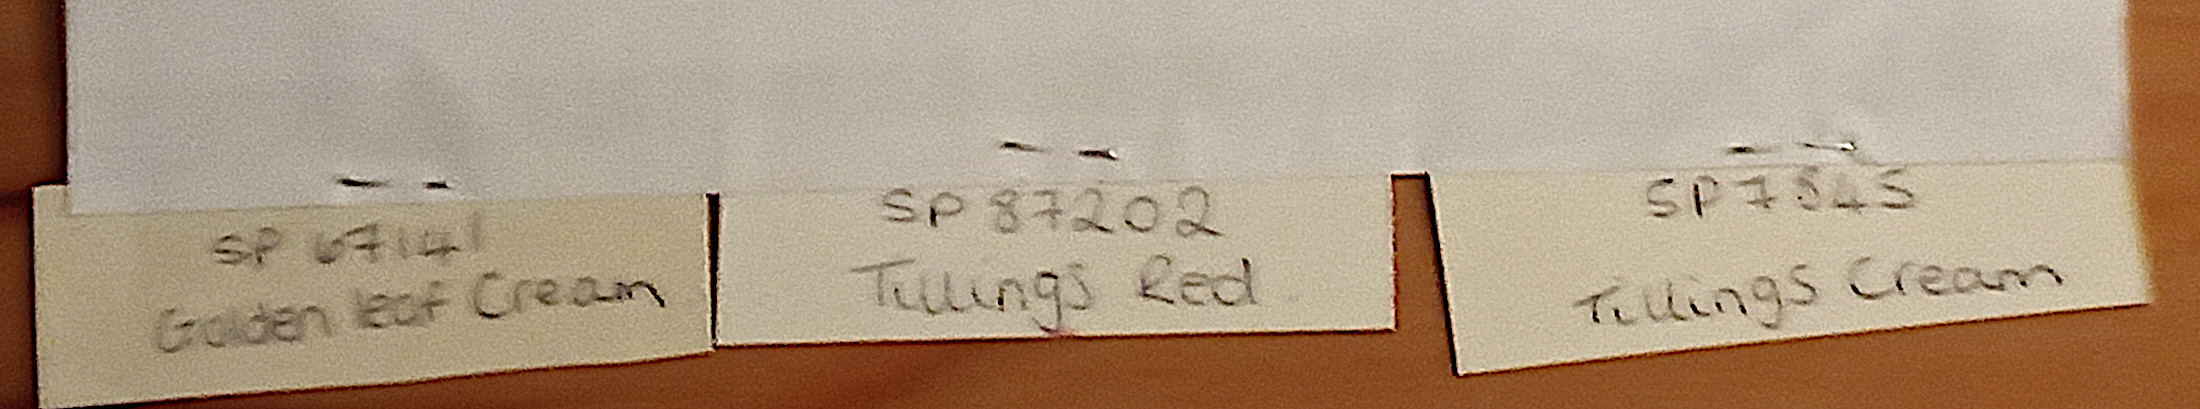 SP 67141
Golden leaf Cream
SP 87202
Tillings Red
SP 7545
Tillings Cream